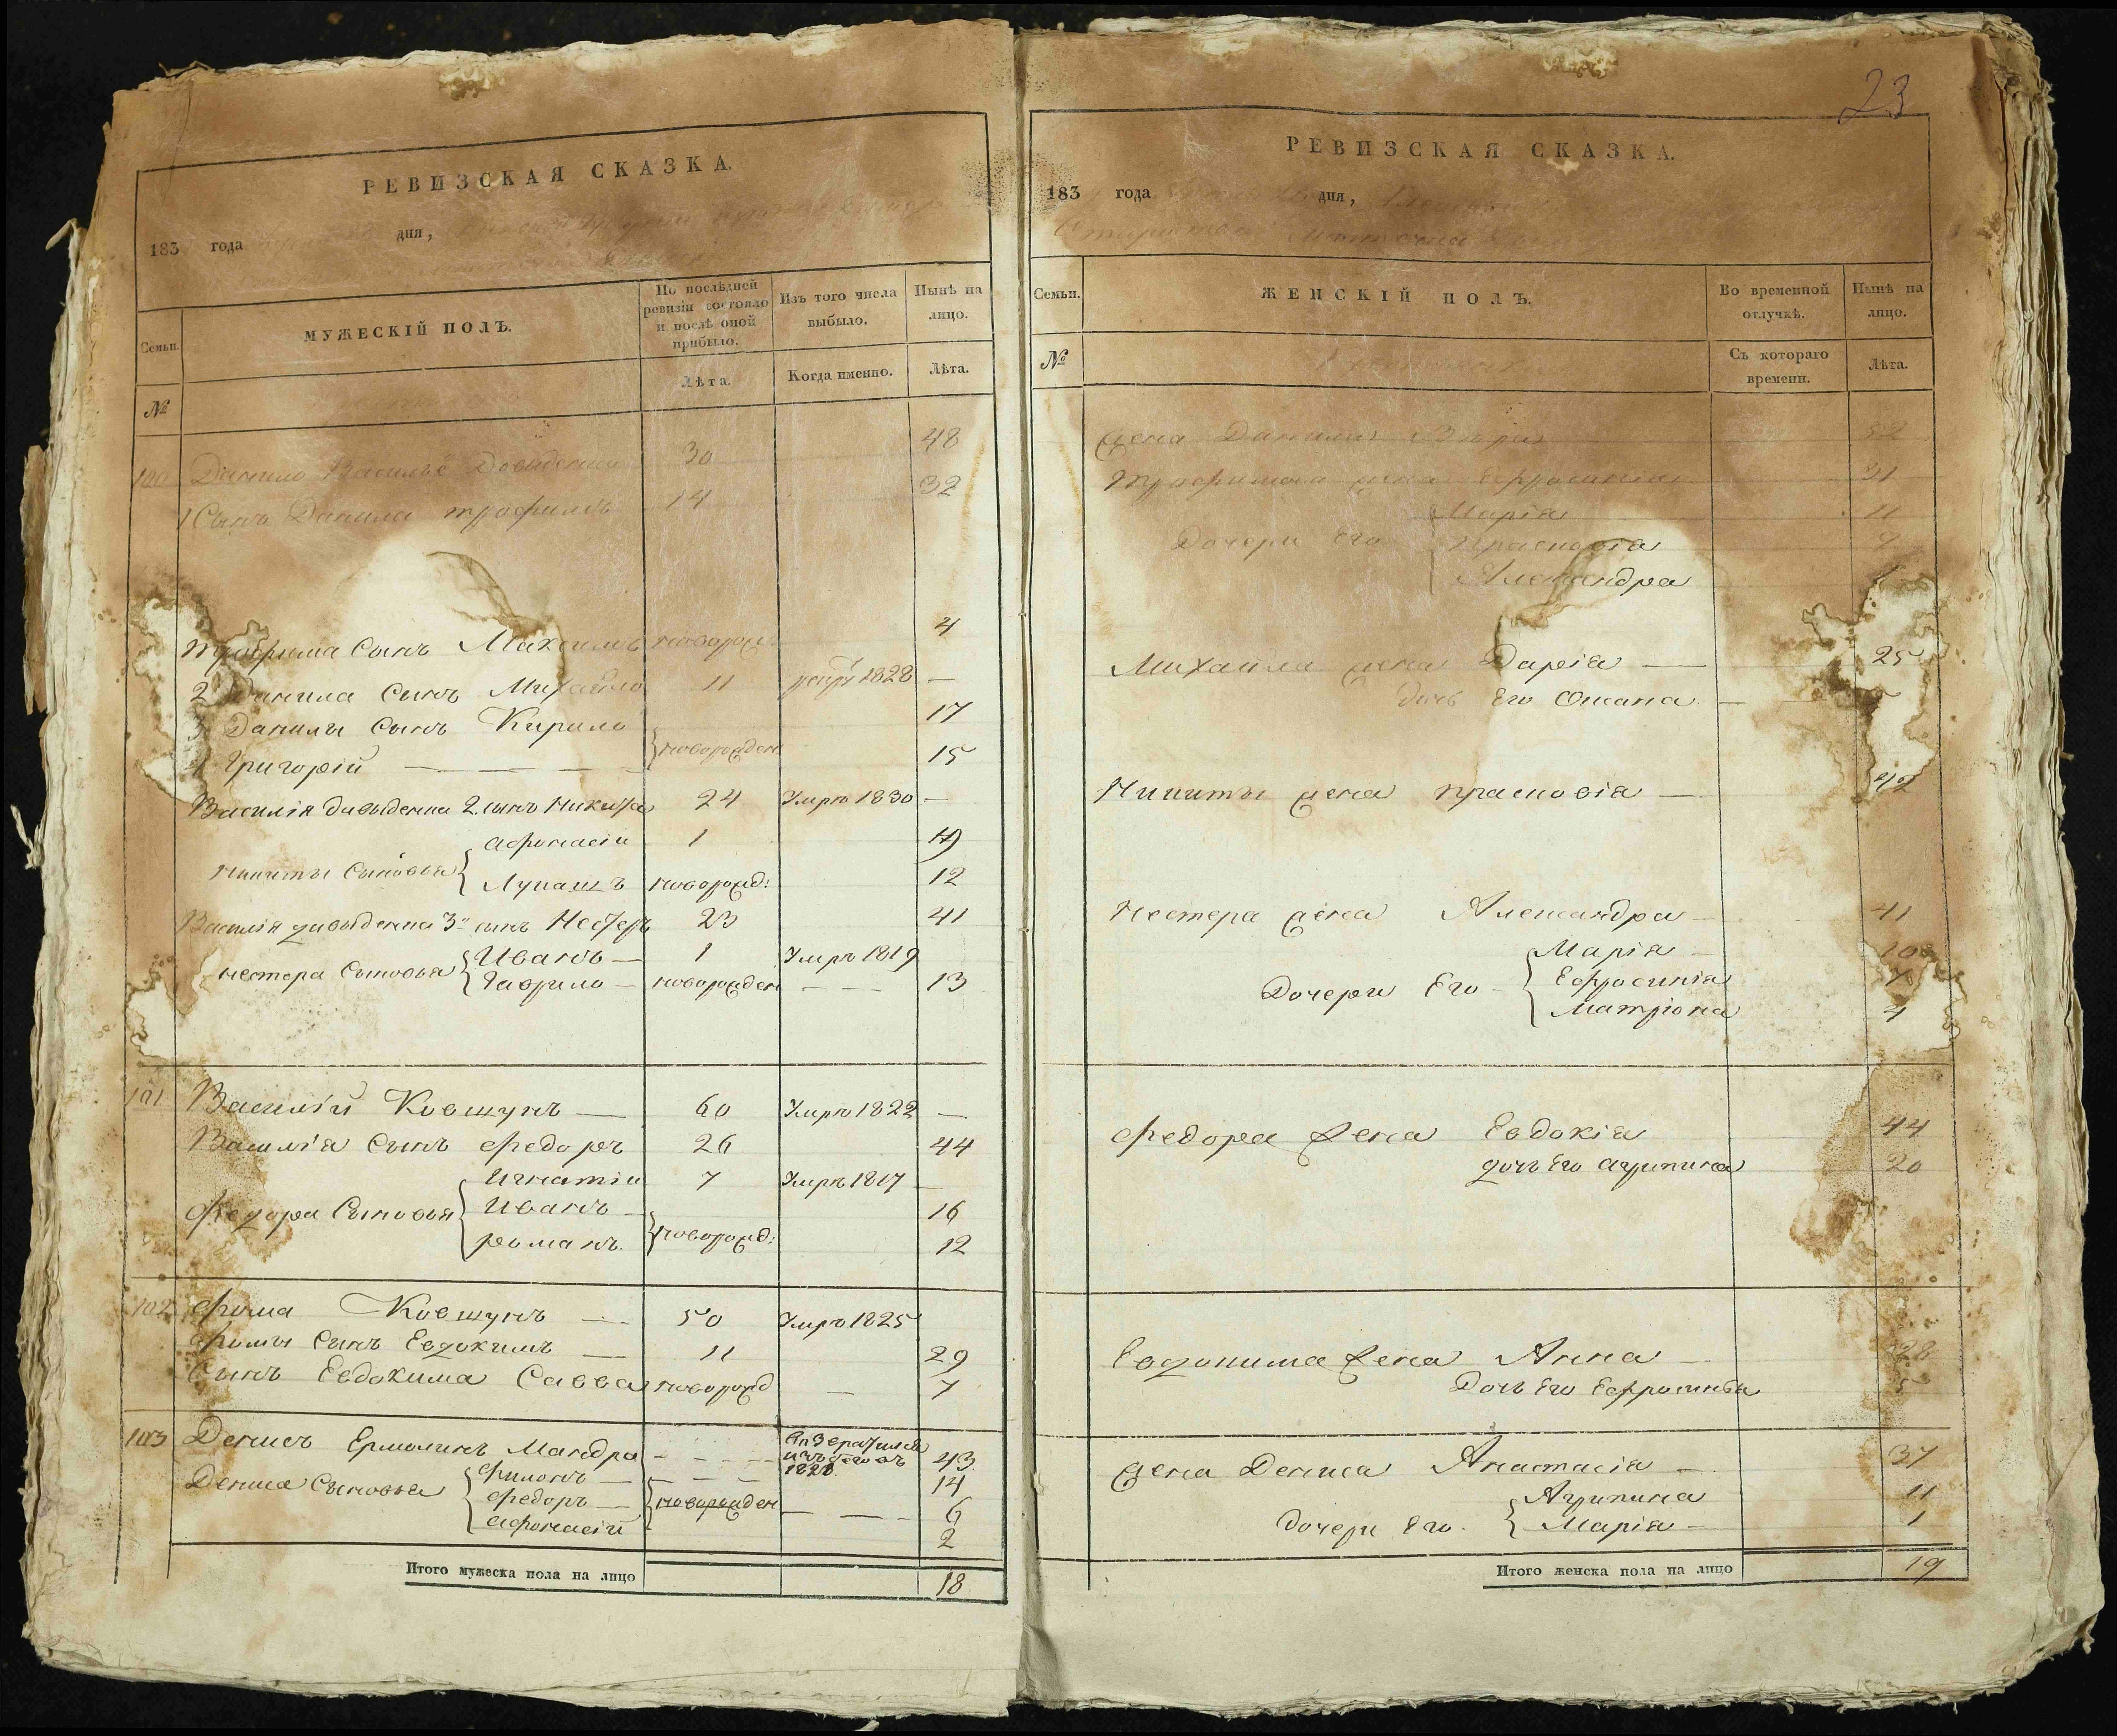 РЕВИЗСКАЯ СКАЗКА.
183 года дня,
Семьи.
МУЖЕСКІЙ ПОЛЪ.
По послѣдней ревизіи состояло и послѣ оной прибыло.
Изъ того числа выбыло.
Нынѣ на лицо.
№
Лѣта.
Когда именно.
Лѣта.
100 Данило Давыденко 30 48
1 Сынъ Данила Трофимъ 14 32
Трофима Сынъ Максимъ новорож 4
2 Данила Сынъ Михайло 11 1828 —
3 Данилы Сынъ Кирило 17
4 Григорій — новорожден 15
Василія Давыденка 2. сынъ Никита 24 Умръ 1830 —
Афонасій 1 19
Никиты Сыновья Лукашъ новорожд: 12
Василія Давыденка 3й сынъ Нестеръ 23 41
Иванъ — 1 Умръ 1819
Нестера Сыновья Гаврило — новорожден — — 13
101 Василій Ковшунъ — 60 Умръ 1822 —
Василія Сынъ Федоръ 26 44
Игнатій 7 Умръ 1817 —
Федора Сыновья Иванъ — 16
Романъ. новорожд: 12
102 Фома Ковшунъ — 50 Умръ 1825
Фомы Сынъ Евдокимъ — 11 29
Сынъ Евдокима Савва новорожд — 7
103 Денисъ Ермолинъ Мандра — изъ бѣговъ 43
Филонъ — 14
Дениса Сыновья Федоръ — новорожден — 6
Афонасій 2
Итого мужеска пола на лицо 18
23
РЕВИЗСКАЯ СКАЗКА.
183 года дня,
Семьи.
ЖЕНСКІЙ ПОЛЪ.
Во временной отлучкѣ.
Нынѣ на лицо.
№
Съ котораго времени.
Лѣта.
Жена Данилы
Трофимова жена Ефросинія 31
Марія 11
Дочери Его Прасковія 9
Александра
Михайла жена Дарія — 25
дочь Его Оксана —
Никиты жена Прасковія — 42
Нестера жена Александра — 41
Марія — 10
Дочери Его — Ефросинія 7
Матріона 4
Федора Жена Евдокія 44
дочь Его Агрипина 20
Евдокима Жена Анна — 28
Дочь Его Ефросинья 5
Жена Дениса Анастасія — 37
Агрипина 11
дочери Его. Марія — 1
Итого женска пола на лицо 19